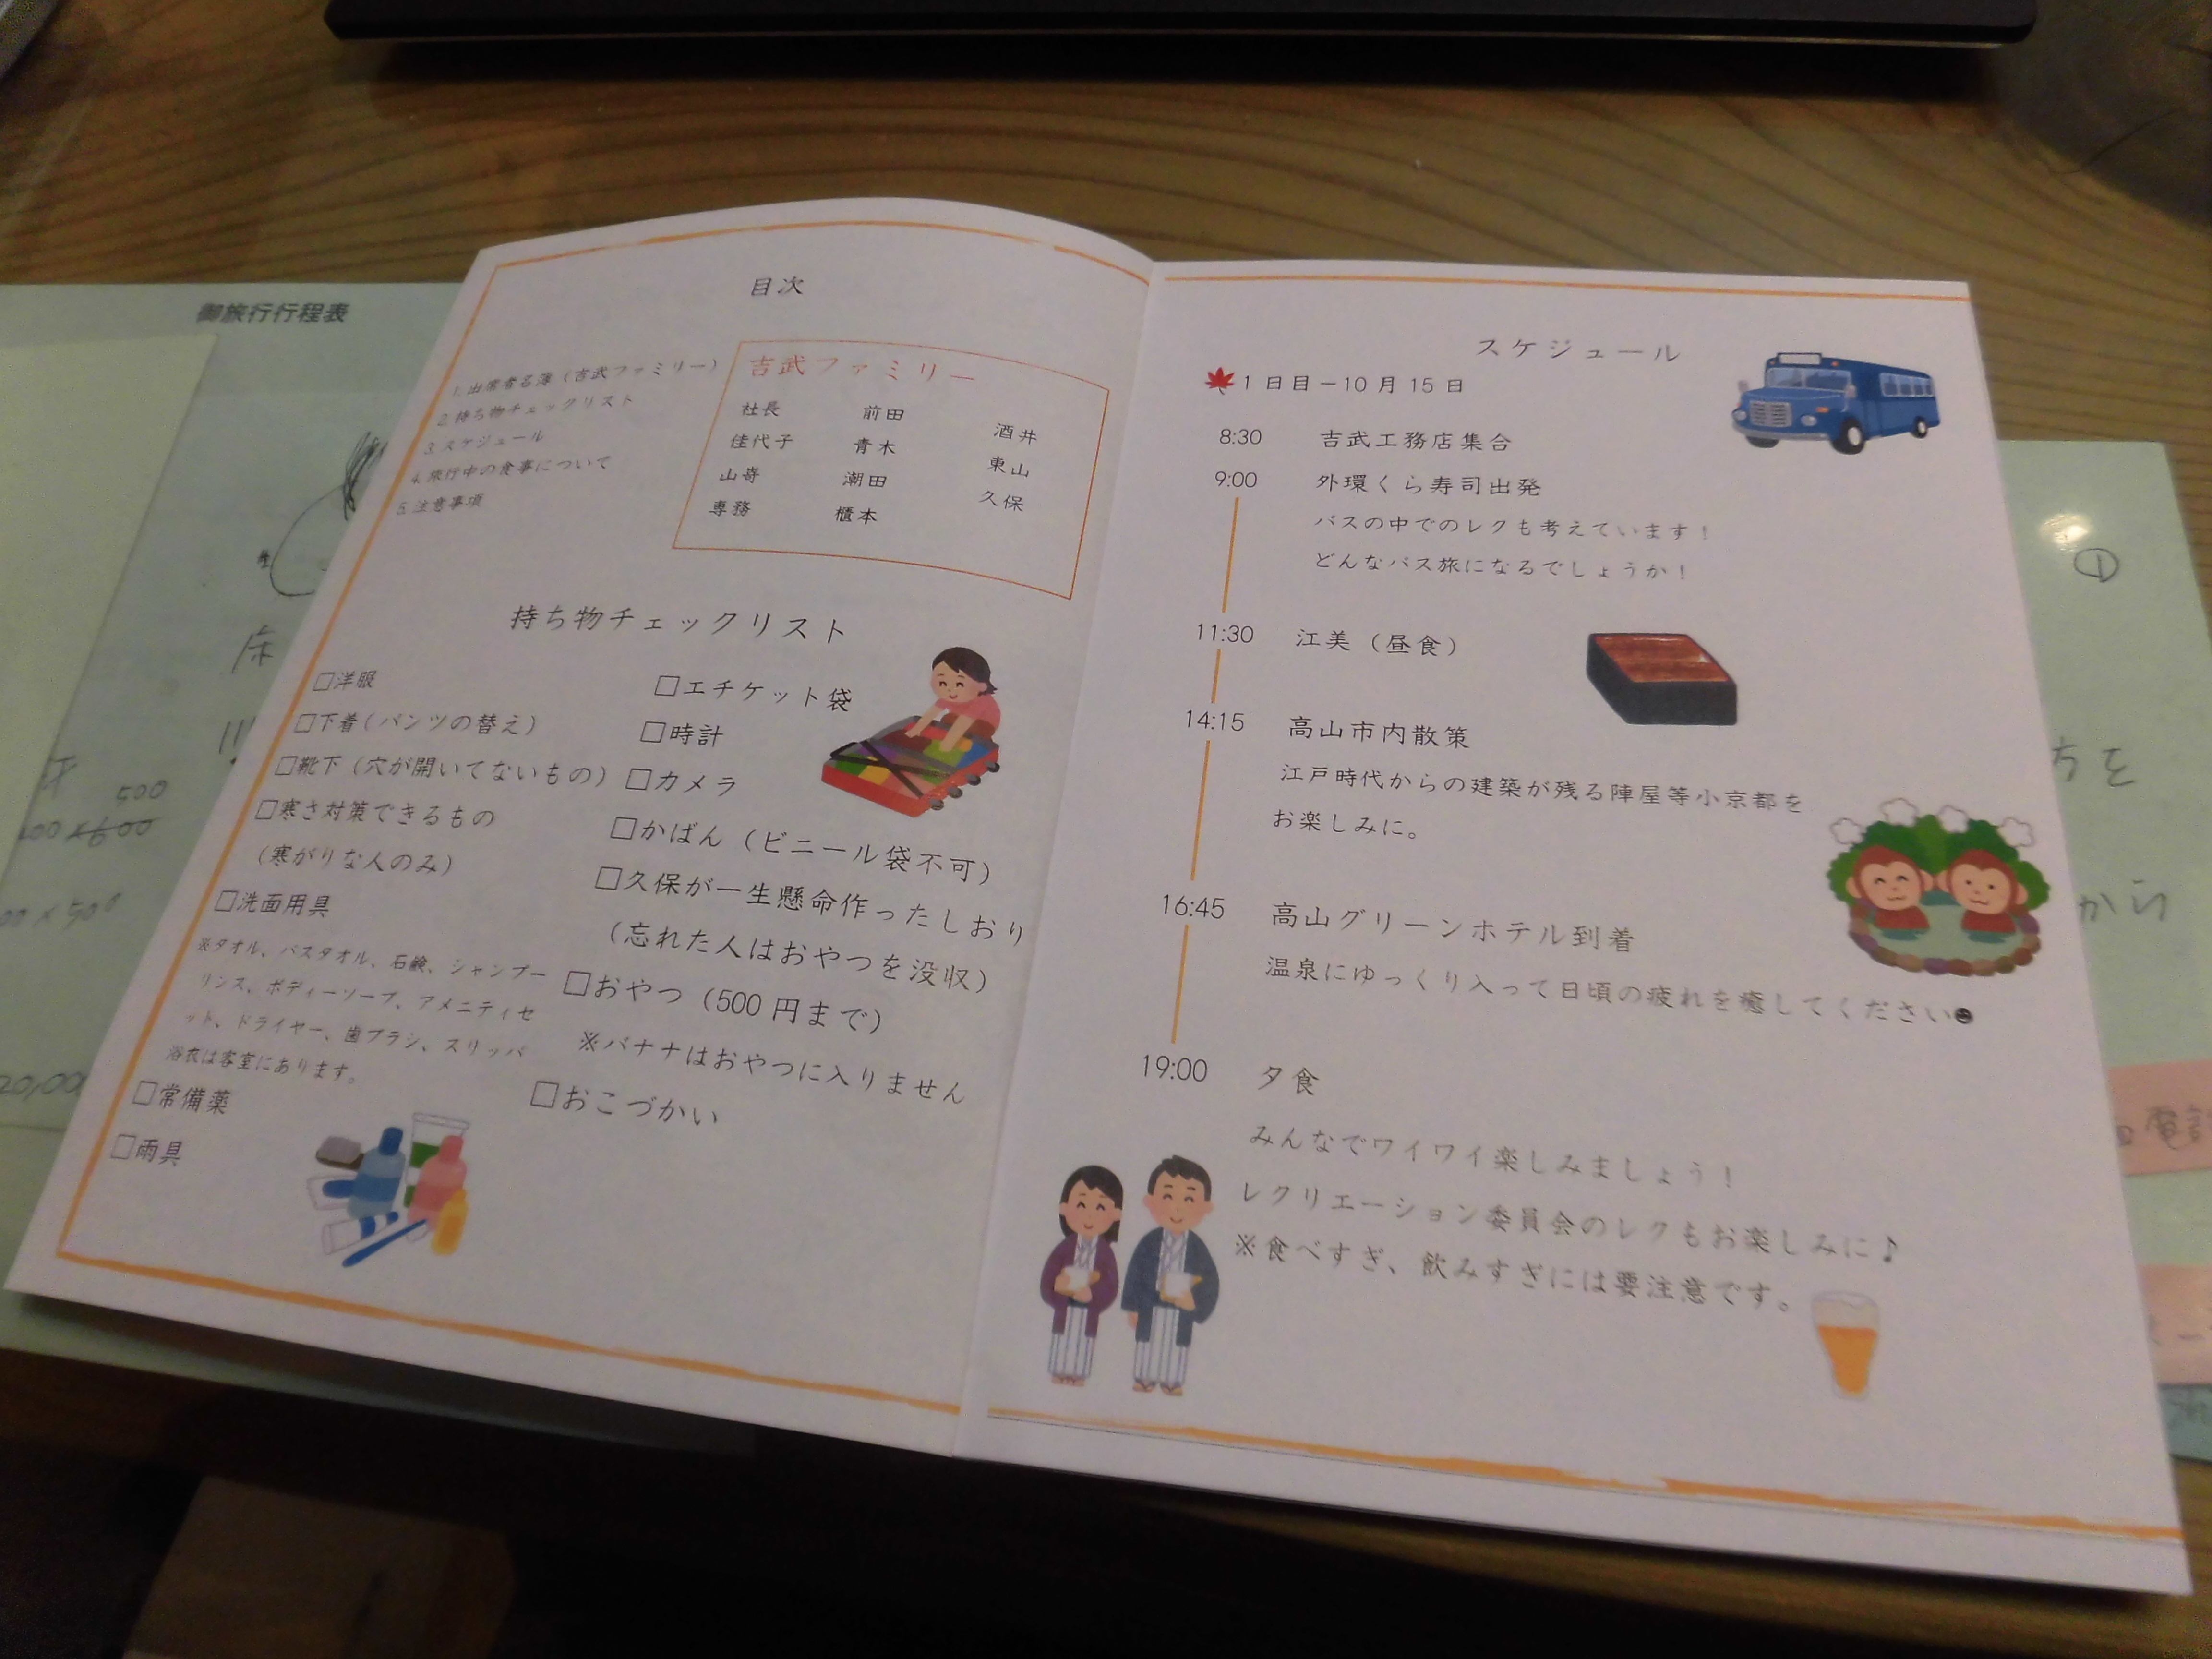 御旅行行程表
目次
1.出席者名簿（吉武ファミリー）
2.持ち物チェックリスト
3.スケジュール
4.旅行中の食事について
5.注意事項
吉武ファミリー
社長 前田 酒井
佳代子 青木 東山
山嵜 潮田 久保
専務 櫃本
持ち物チェックリスト
□洋服
□下着（パンツの替え）
□靴下（穴が開いてないもの）
□寒さ対策できるもの
（寒がりな人のみ）
□洗面用具
※タオル、バスタオル、石鹸、シャンプー
リンス、ボディーソープ、アメニティセ
ット、ドライヤー、歯ブラシ、スリッパ
浴衣は客室にあります。
□常備薬
□雨具
□エチケット袋
□時計
□カメラ
□かばん（ビニール袋不可）
□久保が一生懸命作ったしおり
（忘れた人はおやつを没収）
□おやつ（500円まで）
※バナナはおやつに入りません
□おこづかい
スケジュール
1日目－10月15日
8:30 吉武工務店集合
9:00 外環くら寿司出発
バスの中でのレクも考えています！
どんなバス旅になるでしょうか！
11:30 江美（昼食）
14:15 高山市内散策
江戸時代からの建築が残る陣屋等小京都を
お楽しみに。
16:45 高山グリーンホテル到着
温泉にゆっくり入って日頃の疲れを癒してください☻
19:00 夕食
みんなでワイワイ楽しみましょう！
レクリエーション委員会のレクもお楽しみに♪
※食べすぎ、飲みすぎには要注意です。
床
500
①
から